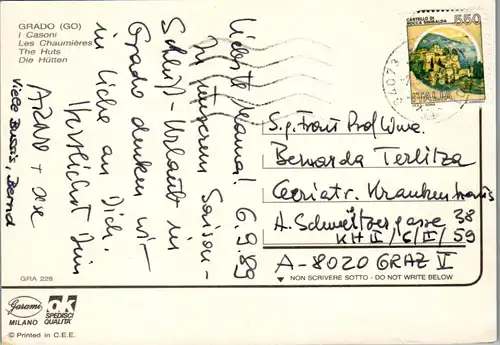 GRADO (GO)
I Casoni
Les Chaumières
The Huts
Die Hütten
CASTELLO DI
ROCCA SINIBALDA
550
ITALIA
34073
Liebste Mama! 6.9.89
In unserem Saison-
Schluß-Urlaub in
Grado denken wir
in Liebe an Dich.
Herzlichst Dein
ARNO + Ilse
Viele Bussis, Bernd
S.g. Frau Prof. Wwe.
Bernarda Terlitza
Geriatr. Krankenhaus
A. Schweitzergasse 38
KH II/6/II/59
A-8020 GRAZ V
NON SCRIVERE SOTTO - DO NOT WRITE BELOW
GRA 228
Garami
MILANO
OK
SPEDISCI
QUALITÀ
© Printed in C.E.E.